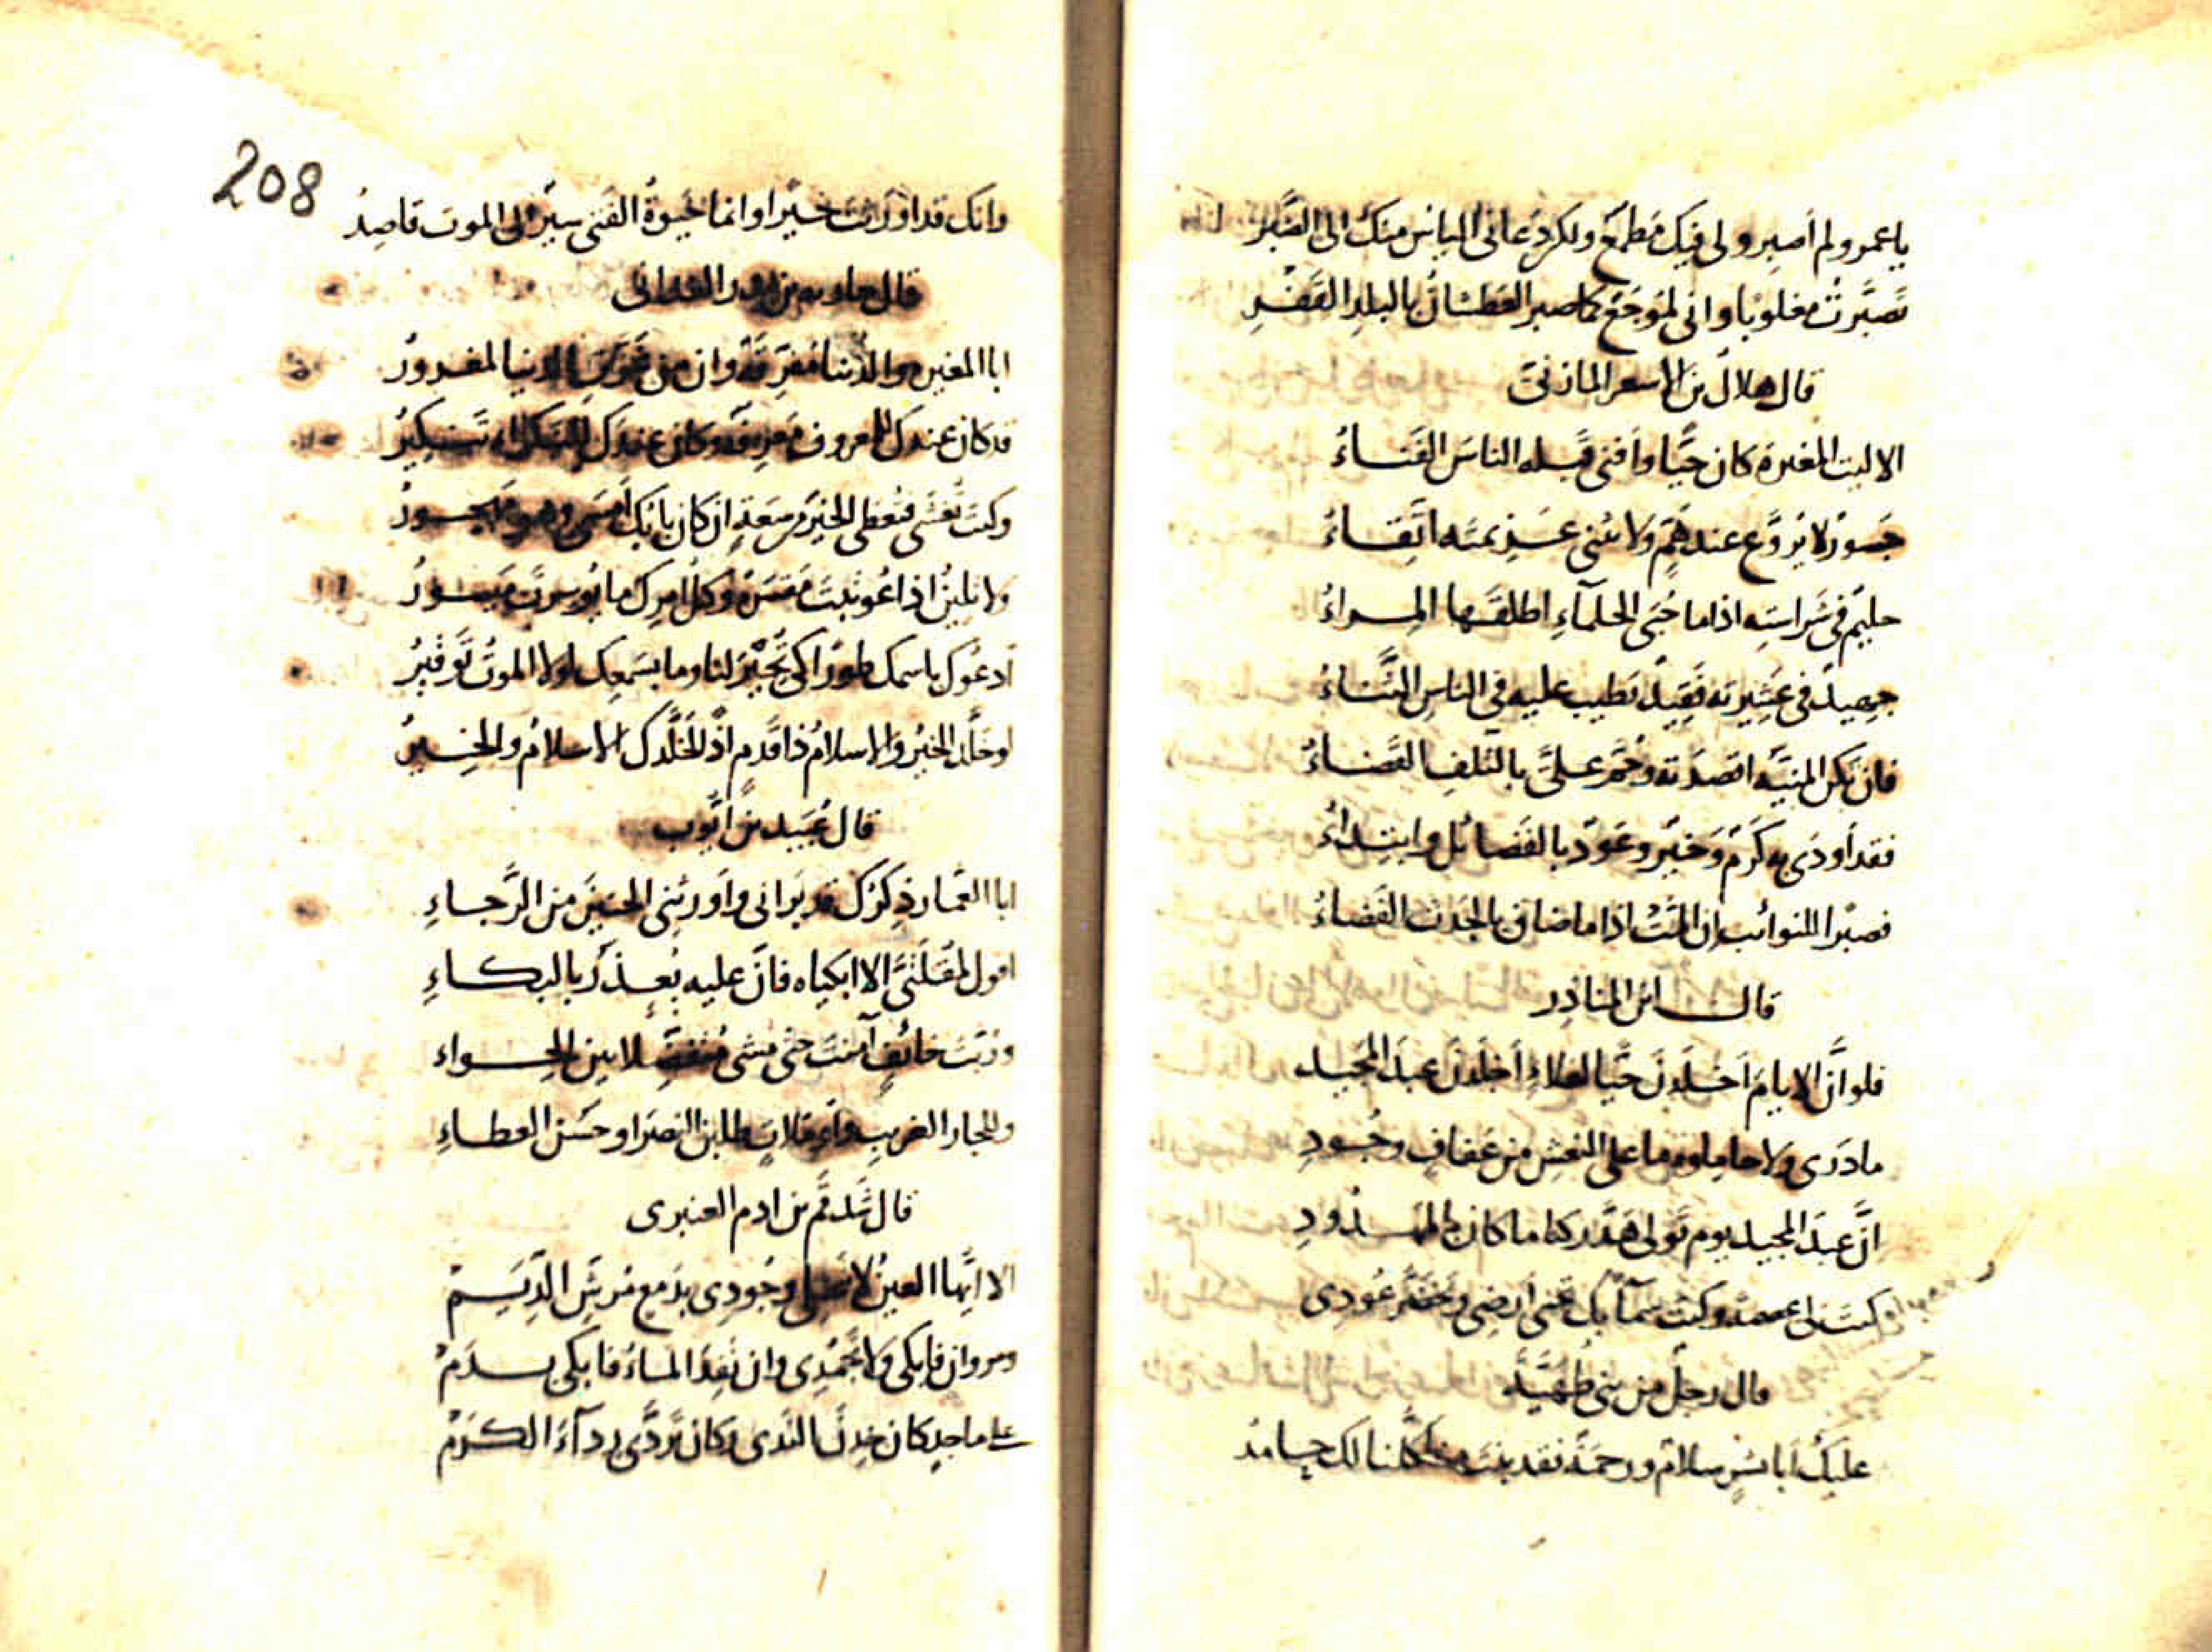 ياعمرو لم اصبر ولى فيك مطمع ولكن دعانى الياس منك الى الصبر
تصبرت مغلوبا وانى لموجع كما صبر العطشان بالبلد القفر
قال هلال بن الاسعر المازنى
الا ليت المغيرة كان حيا وافنى قبله الناس الفناء
جسور لا يروع عند هم ولا يثنى عزيمته اتقاء
حليم فى شراسته اذا ما حبى الحلماء اطلقها المراء
حميد فى عشيرته فقيد تطيب عليه فى الناس الثناء
فان تكن المنية اقصدته وحم على بالتلف القضاء
فقد اودى به كرم وخير وعود بالفضائل وابتداء
فصبرا للنوائب ان المت اذا ما ضاق بالحدث الفضاء
قال ابن المناذر
فلو ان الايام اخلدن حيا لعلاء اخلدن عبد المجيد
ما درى ولا حاملوه ما على النعش من عفاف وجود
ان عبد المجيد يوم تولى هد ركنا ما كان بالمهدود
كنت لى عصمة وكنت سماء بك تحيى ارضى ويخضر عودى
قال رجل من بنى طهية
عليك ابا بشر سلام ورحمة فقد بنت حامد
208
وانك قد اورثت خيرا وانما حيوة الفتى سير الى الموت قاصد
قال بن بدر الغدانى
ابا المغيرة والدنيا مفرقة وان من غرت الدنيا لمغرور
قد كان عندك للمعروف معرفة وكان عندك للنكراء تنكير
وكنت تغشى فتعطى الخير من سعة ان كان بابك امسى وهو مهجور
ولا تلين اذا عوتبت مقتسرا وكل امرك ما يوسرت ميسور
ادعوك باسمك طورا كى تجيز لنا وما بسمعك لولا الموت توقير
لو خلد الخير والاسلام ذا قدم اذا لخلدك الاسلام والخير
قال عبيد بن ايوب
ابا العمار ذكرك قد برانى واورثنى الحنين من الرجاء
اقول لمقلتى الا ابكياه فان عليه يعذر بالبكاء
وربت خائف آمنت حتى مشى لا بين الحواء
وللجار الغريب طالبن النصر او حسن العطاء
قال شدقم بن ادم العنبرى
الا ايها العين لا وجودى بدمع مرش الديم
ومروان فابكى ولا تجمدى وان نفد الماء فابكى بدم
على ماجد كان خدنا لندى وكان تردى رداء الكرم